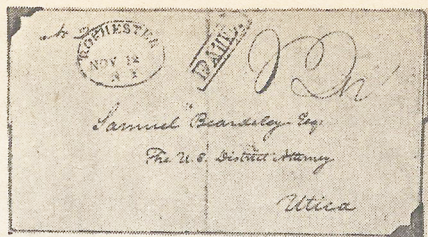 ROCHESTER
NOV 12
N Y
PAID
Samuel Beardsley Esq
The U.S. District Attorney
Utica